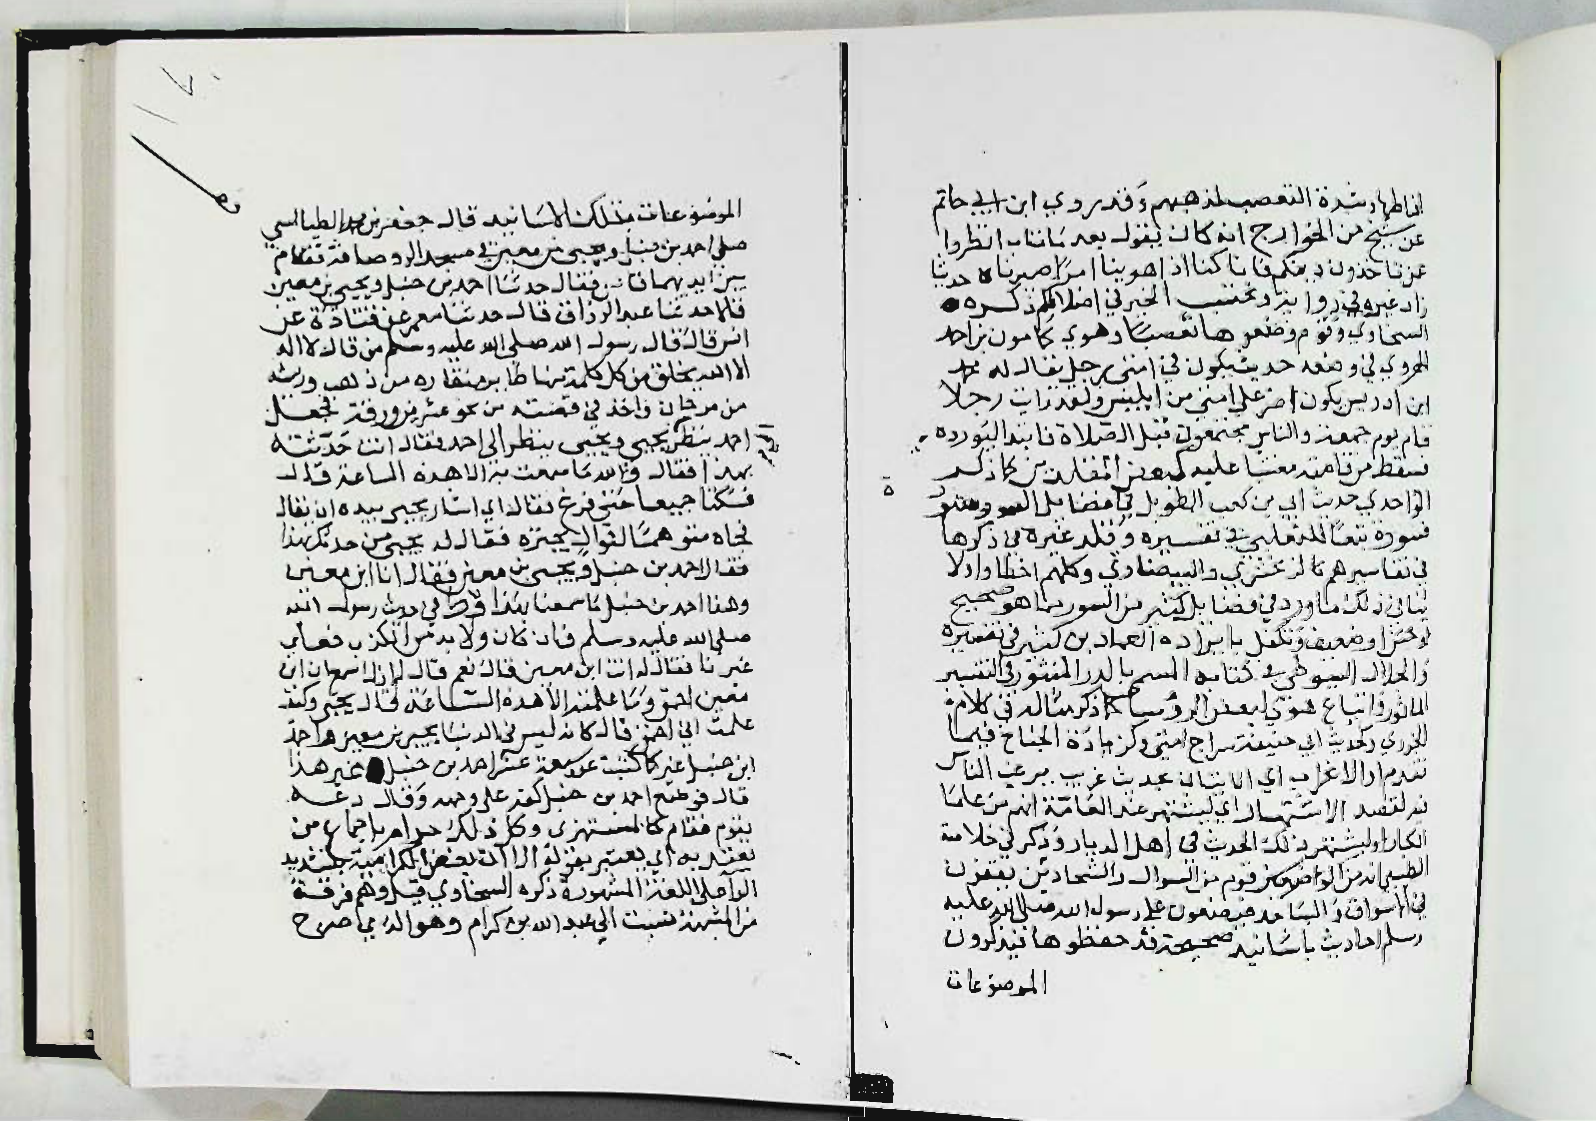 شدة التعصب لمذهبهم وقد روي ابن ابي حاتم
عن شيخ من الخوارج انه كان يقول بعد ما تاب انظروا
عن تاخذون دينكم فانا كنا اذا هوينا امرا صيرناه حديثا
زاد غيره في رواية ونحتسب الخير في اضلالكم ذكره
السخاوي وقوم وضعوها تعصبا وهوي كمامون بن احمد
الهروي في وضعه حديث يكون في امتي رجل يقال له محمد
ابن ادريس يكون اضر علي امتي من ابليس ولقد رايت رجلا
قام يوم جمعة والناس مجتمعون قبل الصلاة فابتدا ليورده
فسقط من قامته مغشيا عليه كما ذكر
الواحدي حديث ابي بن كعب الطويل في فضايل السور سورة
فسورة تبعا للثعلبي في تفسيره وقلد غيره في ذكرها
في تفاسيرهم كالزمخشري والبيضاوي وكلهم اخطاوا ولا
ينافي ذلك ما ورد في فضايل كثير من السور مما هو صحيح
او حسن او ضعيف وتكفل بايراده العماد بن كثير في تفسيره
والجلال السيوطي في كتابه المسمى بالدر المنثور في التفسير
الماثور واتباع هوي لبعض الروسا كما ذكر مثاله في كلام
الجزري وكحديث ابي حنيفة سراج امتي وكزيادة الجناح فيما
تقدم او الاغراب اي الاتيان بحديث غريب يرغب الناس
لقصد الاشتهار اي ليشتهر عند العامة انه من علما
الكبار او ليشتهر ذلك الحديث في اهل الديار وذكر في خلاصة
الطيبي انه من الواضعين قوم من السوال والشحادين يقفون
في الاسواق والمساجد فيضعون علي رسول الله صلى الله عليه
وسلم احاديث باسانيد صحيحة قد حفظوها فيذكرون
الموضوعات
الموضوعات بتلك الاسانيد قال جعفر بن محمد الطيالسي
صلي احمد بن حنبل ويحيي بن معين في مسجد الرصافة فقام
بين ايديهما قاص فقال حدثنا احمد بن حنبل ويحيي بن معين
قالا حدثنا عبد الرزاق قال حدثنا معمر عن قتادة عن
انس قال قال رسول الله صلى الله عليه وسلم من قال لا اله
الا الله يخلق من كل كلمة منها طاير منقاره من ذهب وريشه
من مرجان واخذ في قصته من نحو عشرين ورقة فجعل
احمد ينظر يحيي ويحيي ينظر الى احمد فقال انت حدثته
بهذا فقال والله ما سمعت به الا هذه الساعة قال
فسكتنا جميعا حتى فرغ فقال اي اشار يحيي بيده ان تعال
فجاه متوهما لنوال يجيزه فقال له يحيي من حدثك بهذا
فقال احمد بن حنبل ويحيي بن معين فقال انا ابن معين
وهذا احمد بن حنبل ما سمعنا بهذا قط في حديث رسول الله
صلى الله عليه وسلم فان كان ولا بد من الكذب فعلي
غيرنا فقال له انت ابن معين قال نعم قال لم ازل اسمع ان ابن
معين احمق وما علمته الا هذه الساعة قال يحيي وكيف
علمت اني احمق قال كانه ليس في الدنيا يحيي بن معين واحمد
ابن حنبل غيركما كتبت عن سبعة عشر احمد بن حنبل غير هذا
قال فوضع احمد بن حنبل كمه علي وجهه وقال دعه
يقوم فقام كالمستهزي وكل ذلك حرام باجماع من
يعتد به اي يعتبر بقوله الا ان بعض الكرامية بتشديد
الرا على اللغة المشهورة ذكره السخاوي قيل وهم فرقة
من المشبهة نسبت الي عبد الله بن كرام وهو الذي صرح